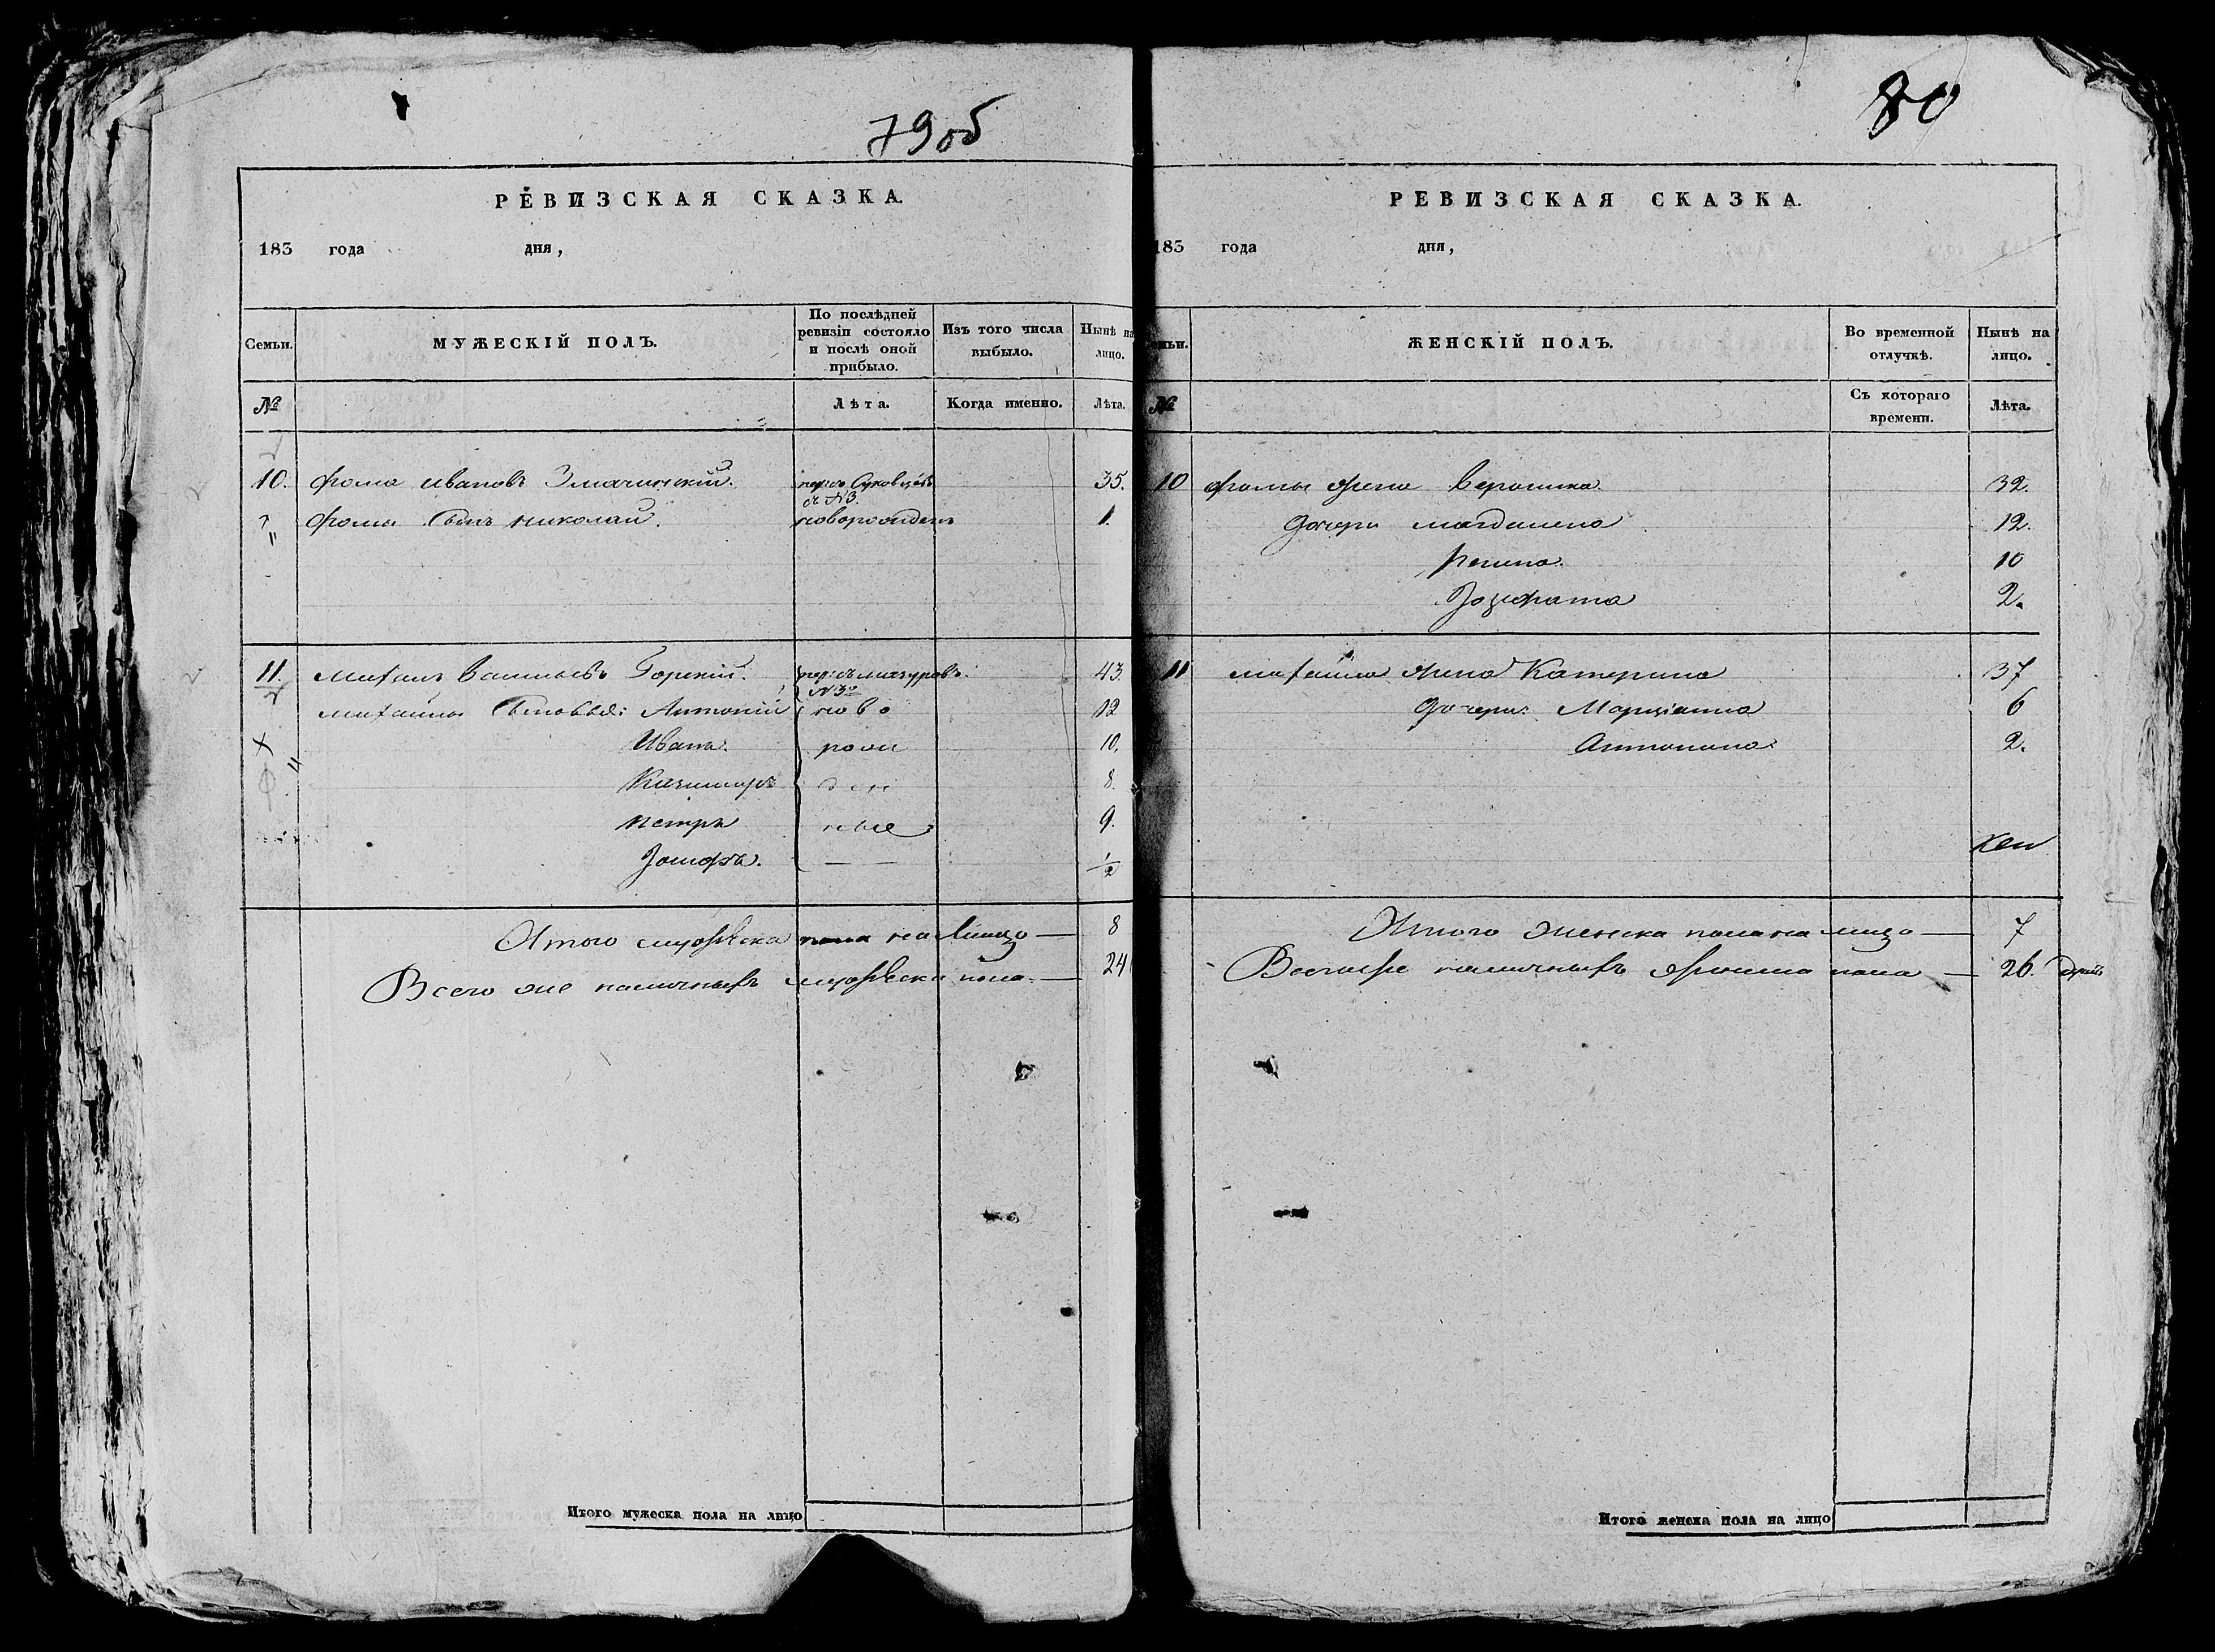 79об
РЕВИЗСКАЯ СКАЗКА.
183 года дня,
Семьи. МУЖЕСКІЙ ПОЛЪ. По послѣдней ревизіи состояло и послѣ оной прибыло. Изъ того числа выбыло. Нынѣ на лицо.
№ Лѣта. Когда именно. Лѣта.
10. Фома Ивановъ 35.
Фомы Сынъ Николай. новорожденъ 1.
11. Михаилъ Васильевъ Горскій. 43.
№ 3º
Михайлы Сыновья: Антоній ново 12
Иванъ. рож 10.
Казимиръ ден 8.
Петръ ные 9.
Іосифъ. — — 1/2
Итого мужеска пола на лицо — 8
Всего же наличныхъ мужеска пола — 24
Итого мужеска пола на лицо
80
РЕВИЗСКАЯ СКАЗКА.
183 года дня,
Семьи. ЖЕНСКІЙ ПОЛЪ. Во временной отлучкѣ. Нынѣ на лицо.
№ Съ котораго времени. Лѣта.
10 Фомы жена Вероника. 32.
Дочери Магдалена 12.
Регина. 10
Іозефата 2.
11 Михайлы жена Катерина 37
Дочери: Марціанна 6
Антонина. 2.
Итого женска пола на лицо — 7
Всего же наличныхъ женска пола — 26.
Итого женска пола на лицо